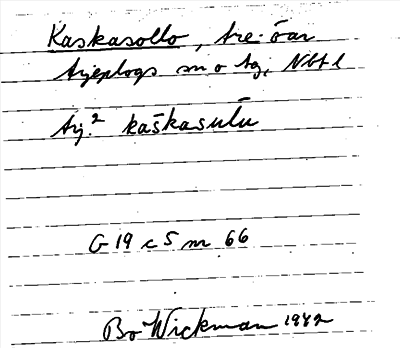 Kaskasollo, tre öar
Arjeplogs sn o tg, Nbt l
Arj.² kaškasulū
G 19 c 5 nr 66
Bo Wickman 1942